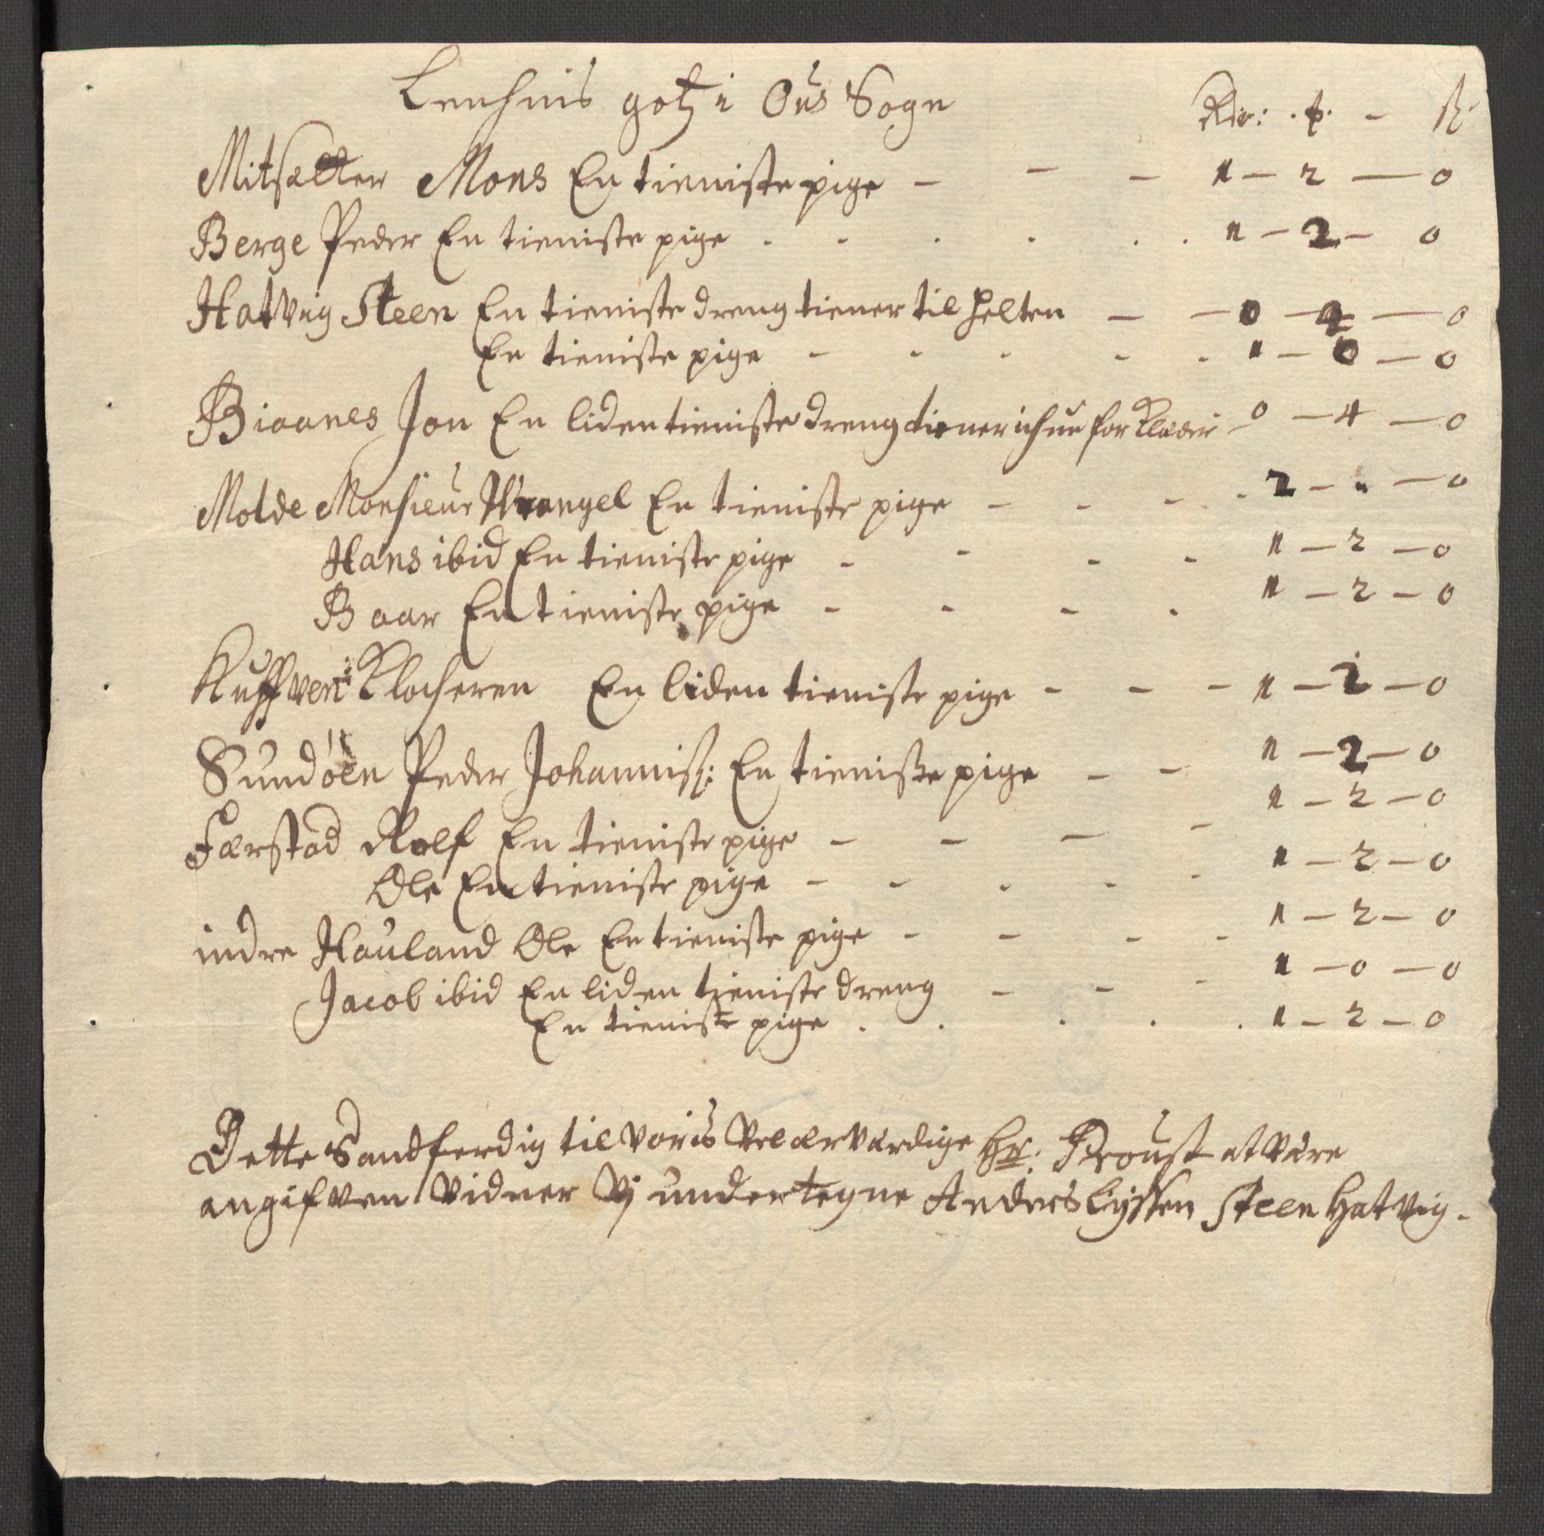 Lenhnis gotz i Ous Sogn
Rdr: . ƭ. - ß
Mitsætter Mons En tieniste pige - - - 1 - 2 - 0
Berge Peder En tieniste pige . . . . . . 1 - 2 - 0
Hatvig Steen En tieniste dreng tiener til helten - - 0 - 4 - 0
En tieniste pige - . . . . 1 - 0 - 0
Biaanes Jon En liden tieniste dreng tiener ichun for Klæder - 0 - 4 - 0
Molde Monsieur Wrangel En tieniste pige - - - . 2 - - 0
Hans ibid En tieniste pige - - - - 1 - 2 - 0
Baar En tieniste pige - - - . 1 - 2 - 0
Kuffven: Klocheren En liden tieniste pige - - - 1 - 2 - 0
Sundøen Peder Johanniss: En tieniste pige - - 1 - 2 - 0
Færstad Rolf En tieniste pige - - - - 1 - 2 - 0
Ole En tieniste pige - - . . . 1 - 2 - 0
indre Hauland Ole En tieniste pige - - - - 1 - 2 - 0
Jacob ibid En liden tieniste dreng - - - 1 - 0 - 0
En tieniste pige . . . . . 1 - 2 - 0
Dette Sandferdig til voris Velærværdige Hr: Proust at være
angifven Vidner Vj undertegne Anders Steen Hatvig.